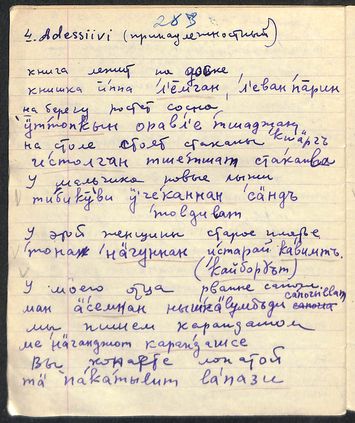 283
4. Adessiivi (принадлежностный)
книга лежит на доске
книшка и́ппа л'е́мган, л'еван па́рин
на берегу растет сосна
ӱттонкын оравл'е тшаджан
на столе стоят стаканы
и́столган тшетшат стака́нла
у мальчика новые лыжи
тибику́ви ӱ́чеканнан са́ндъ
то́вдиват
у этой женщины старое платье
на́гуннан и́старай ка́бимтъ
(ка́йборгът)
у моего отца рваные сапоги
ман а́семнан сапогилат
мы пишем карандашом
ме на́ганджот карандашсе
вы копаете лопатой
та̄ па́катывит ла́пазе